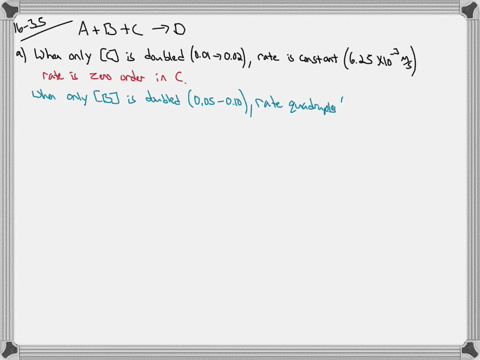 16-35
A + B + C → D
a) When only [C] is doubled (0.01 → 0.02), rate is constant (6.25 x 10⁻³ M/s)
rate is zero order in C.
When only [B] is doubled (0.05 - 0.10), rate quadruples